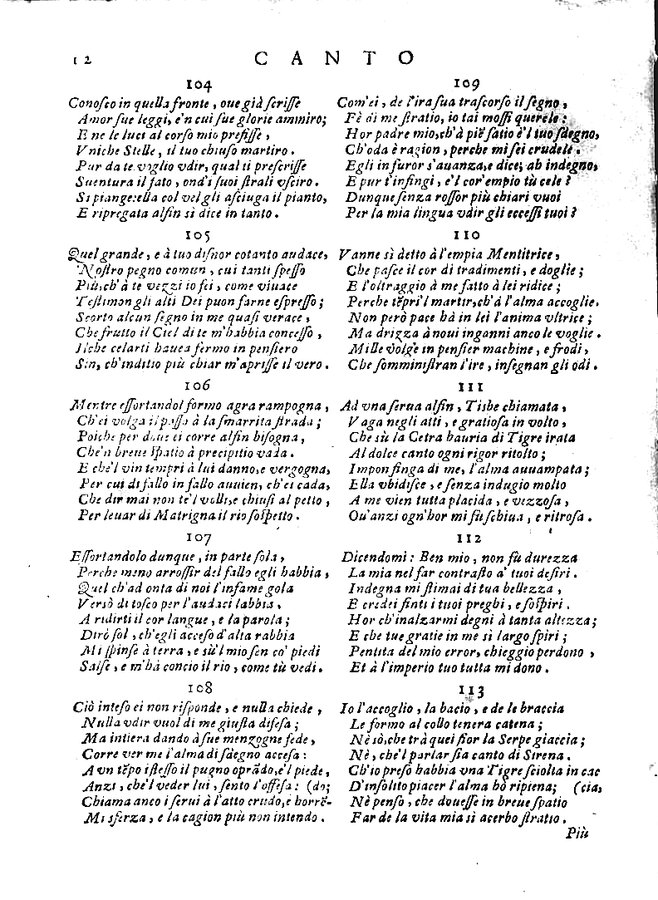 12 CANTO
104
Conosco in quella fronte, oue già scrisse
Amor sue leggi, e'n cui sue glorie ammiro;
E ne le luci al corso mio prefisse,
Vniche Stelle, il tuo chiuso martiro.
Pur da te voglio vdir, qual ti prescrisse
Suentura il fato, ond'i suoi strali vsciro.
Sì piange: ella col vel gli asciuga il pianto,
E ripregata alfin sì dice in tanto.
105
Quel grande, e à tuo disnor cotanto audace,
Nostro pegno comun, cui tanti spesso
Più, ch'à te vezzi io fei, come viuace
Testimon gli alti Dei puon farne espresso;
Scorto alcun segno in me quasi verace,
Che frutto il Ciel di te m'habbia concesso,
Il che celarti hauea fermo in pensiero
Sin, ch'inditio più chiar m'aprisse il vero.
106
Mentre essortandol formo agra rampogna,
Ch'ei volga il passo à la smarrita strada;
Poiche per doue ei corre alfin bisogna,
Che'n breue spatio à precipitio vada.
E che'l vin tempri à lui danno, e vergogna,
Per cui di fallo in fallo auuien, ch'ei cada,
Che dir mai non te'l volli, e chiusi al petto,
Per leuar di Matrigna il rio sospetto.
107
Essortandolo dunque, in parte sola,
Perche meno arrossir del fallo egli habbia,
Quel ch'ad onta di noi l'infame gola
Versò di tosco per l'audaci labbia,
A ridirti il cor langue, e la parola;
Dirò sol, ch'egli acceso d'alta rabbia
Mi spinse à terra, e sù'l mio sen co' piedi
Salse, e m'hà concio il rio, come tù vedi.
108
Ciò inteso ei non risponde, e nulla chiede,
Nulla vdir vuol di me giusta difesa;
Ma intiera dando à sue menzogne fede,
Corre ver me l'alma di sdegno accesa:
A vn tẽpo istesso il pugno oprãdo, e'l piede,
Anzi, che'l veder lui, sento l'offesa: (do;
Chiama anco i serui à l'atto crudo, e horrẽ-
Mi sferza, e la cagion più non intendo.
109
Com'ei, de l'ira sua trascorso il segno,
Fè di me stratio, io tai mossi querele:
Hor padre mio, ch'à piẽ satio è'l tuo sdegno,
Ch'oda è ragion, perche mi sei crudele.
Egli in furor s'auanza, e dice; ah indegno,
E pur t'infingi, e'l cor'empio tù cele?
Dunque senza rossor più chiari vuoi
Per la mia lingua vdir gli eccessi tuoi?
110
Vanne sì detto à l'empia Mentitrice,
Che pasce il cor di tradimenti, e doglie;
E l'oltraggio à me fatto à lei ridice;
Perche tẽpri'l martir, ch'à l'alma accoglie.
Non però pace hà in lei l'anima vltrice;
Ma drizza à noui inganni anco le voglie.
Mille volge in pensier machine, e frodi,
Che somministran l'ire, insegnan gli odi.
111
Ad vna serua alfin, Tisbe chiamata,
Vaga negli atti, e gratiosa in volto,
Che sù la Cetra hauria di Tigre irata
Al dolce canto ogni rigor ritolto;
Impon finga di me, l'alma auuampata;
Ella vbidisce, e senza indugio molto
A me vien tutta placida, e vezzosa,
Qu'anzi ogn'hor mi fù schiua, e ritrosa.
112
Dicendomi: Ben mio, non fù durezza
La mia nel far contrasto a' tuoi desiri.
Indegna mi stimai di tua bellezza,
E credei finti i tuoi preghi, e sospiri.
Hor ch'inalzarmi degni à tanta altezza;
E che tue gratie in me sì largo spiri;
Pentita del mio error, chieggio perdono,
Et à l'imperio tuo tutta mi dono.
113
Io l'accoglio, la bacio, e de le braccia
Le formo al collo tenera catena;
Nè sò, che trà quei fior la Serpe giaccia;
Nè, che'l parlar sia canto di Sirena.
Ch'io preso habbia vna Tigre sciolta in cac
D'insolito piacer l'alma hò ripiena; (cia,
Nè penso, che douesse in breue spatio
Far de la vita mia sì acerbo stratio.
Più